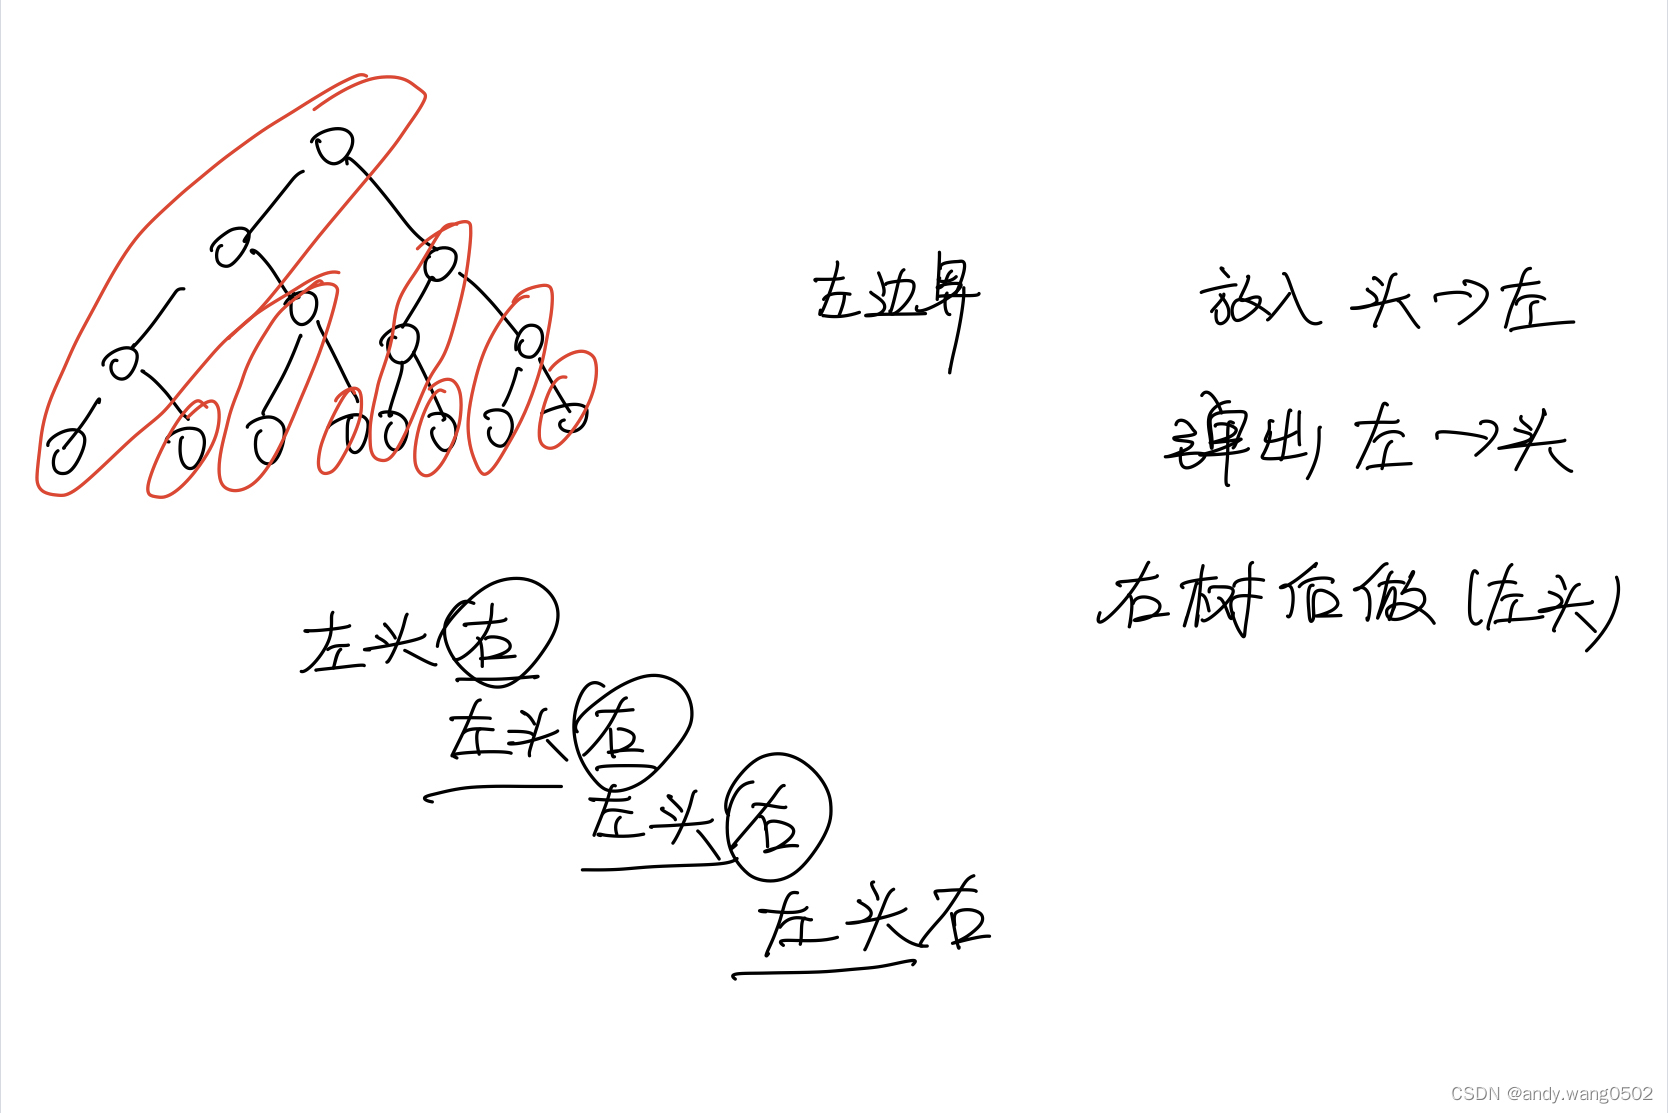 左边界
放入 头→左
弹出 左→头
右树后做(左头)
左头右
左头右
左头右
左头右
CSDN @andy.wang0502